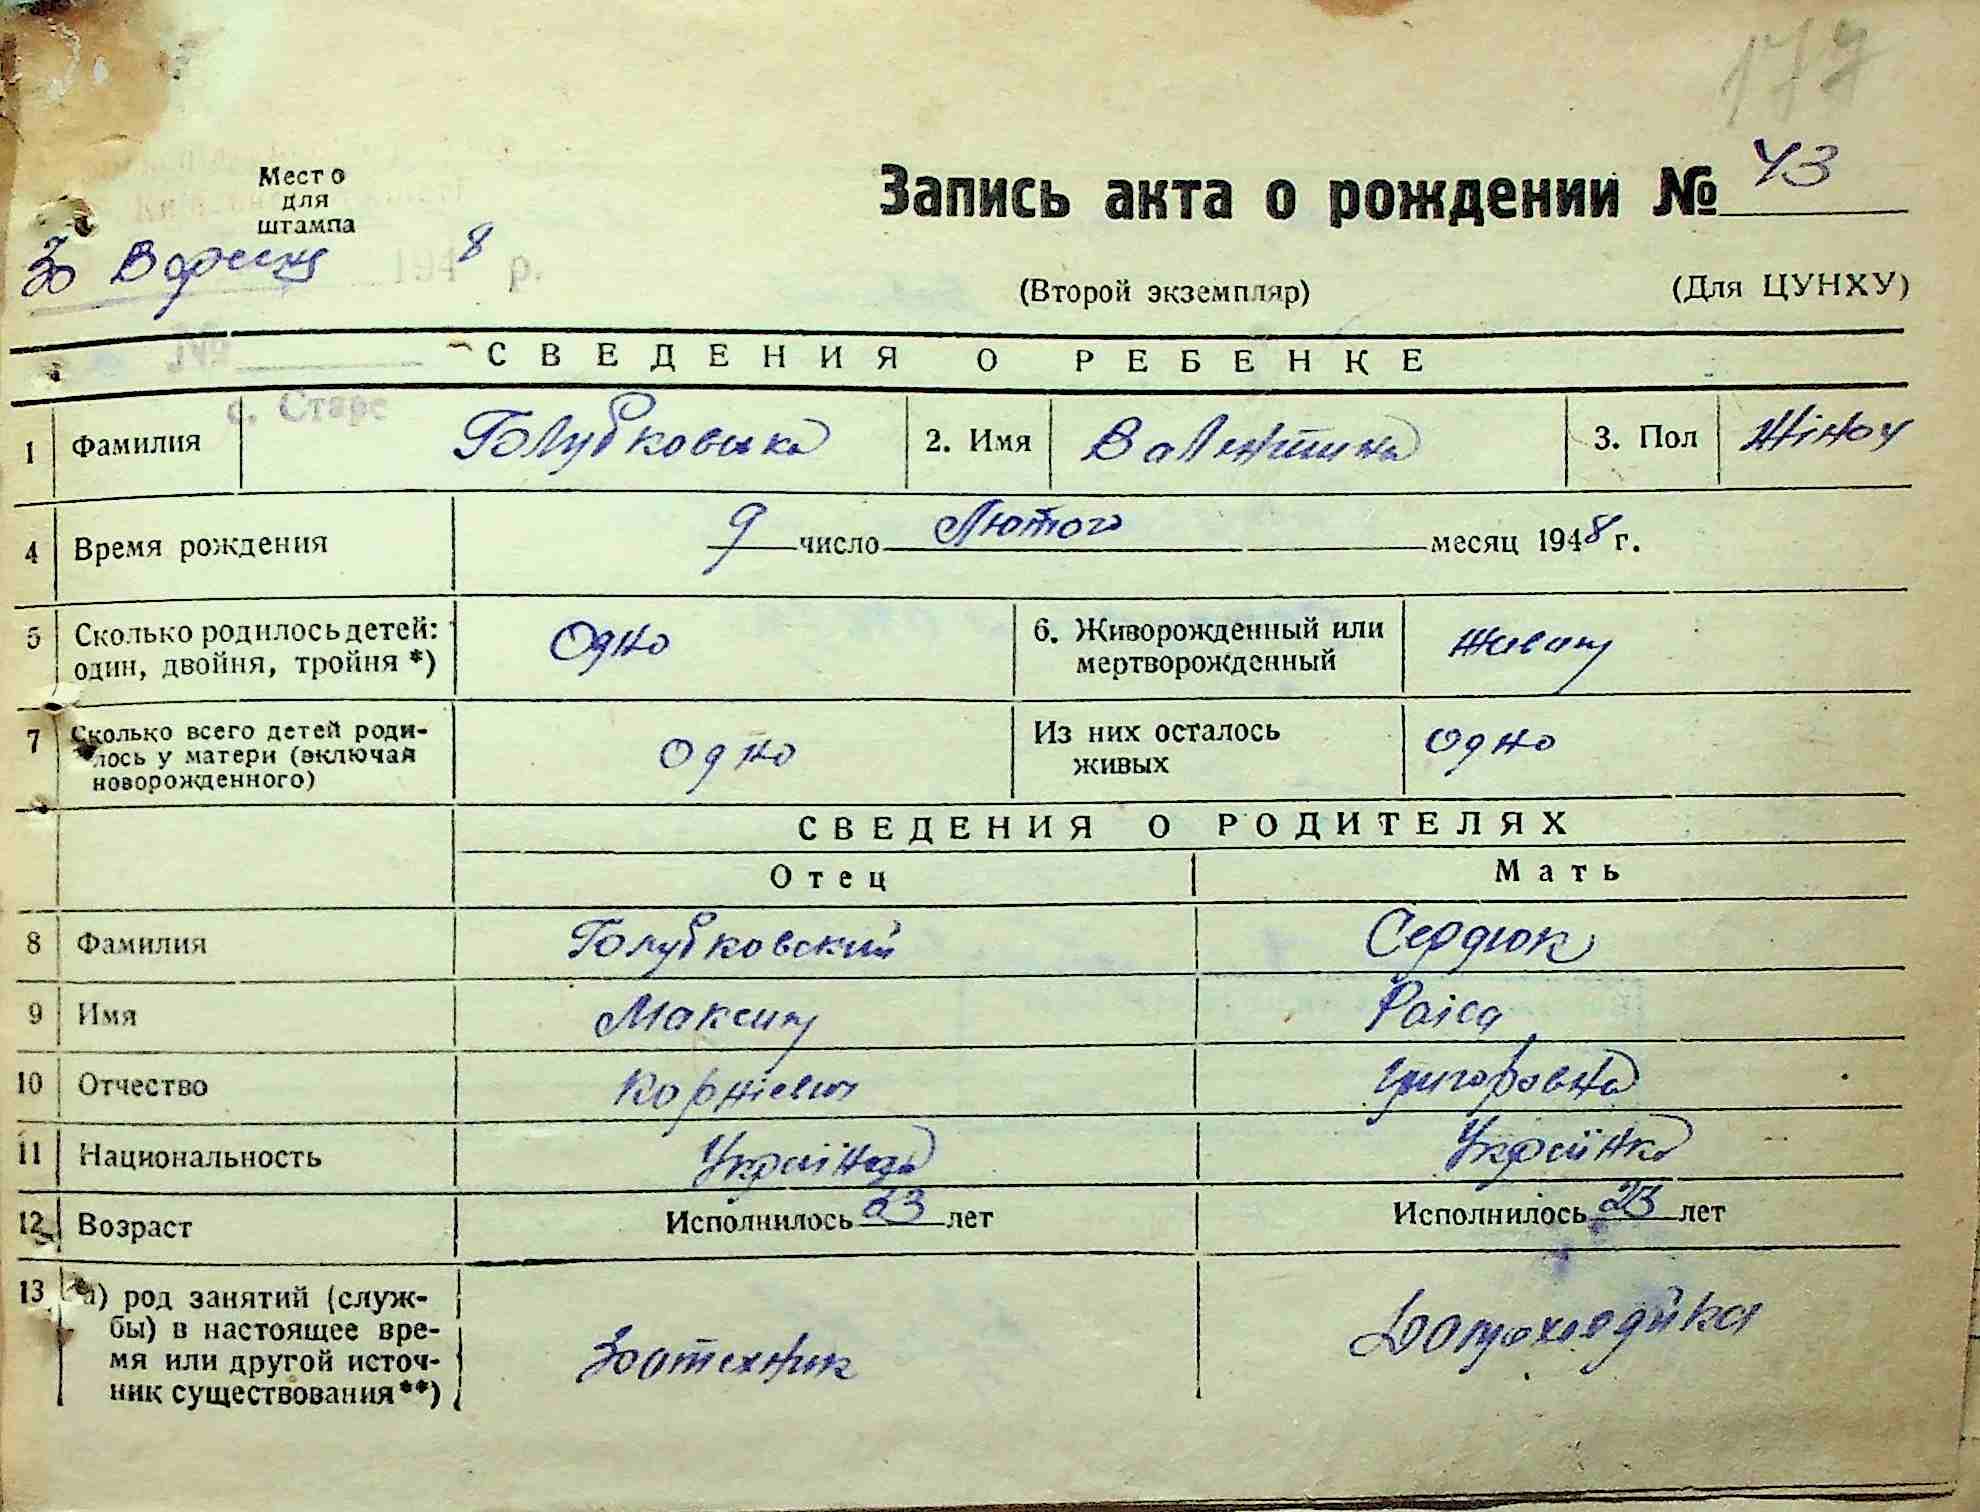 177
Место
для
штампа
Запись акта о рождении № 43
30 Вересня 1948 р.
(Второй экземпляр) (Для ЦУНХУ)
№
СВЕДЕНИЯ О РЕБЕНКЕ
с. Старе
1 Фамилия Голубковська 2. Имя Валентина 3. Пол Жіноч
4 Время рождения 9 число Лютого месяц 1948 г.
5 Сколько родилось детей: Одно 6. Живорожденный или Живим
один, двойня, тройня *) мертворожденный
7 Сколько всего детей роди- Одно Из них осталось Одно
лось у матери (включая живых
новорожденного)
СВЕДЕНИЯ О РОДИТЕЛЯХ
Отец Мать
8 Фамилия Голубковский Сердюк
9 Имя Максим Раіса
10 Отчество Корнієвич Григоровна
11 Национальность Українець Українка
12 Возраст Исполнилось лет Исполнилось 23 лет
13 а) род занятий (служ-
бы) в настоящее вре-
мя или другой источ- Зоотехник Домохозяйка
ник существования**)